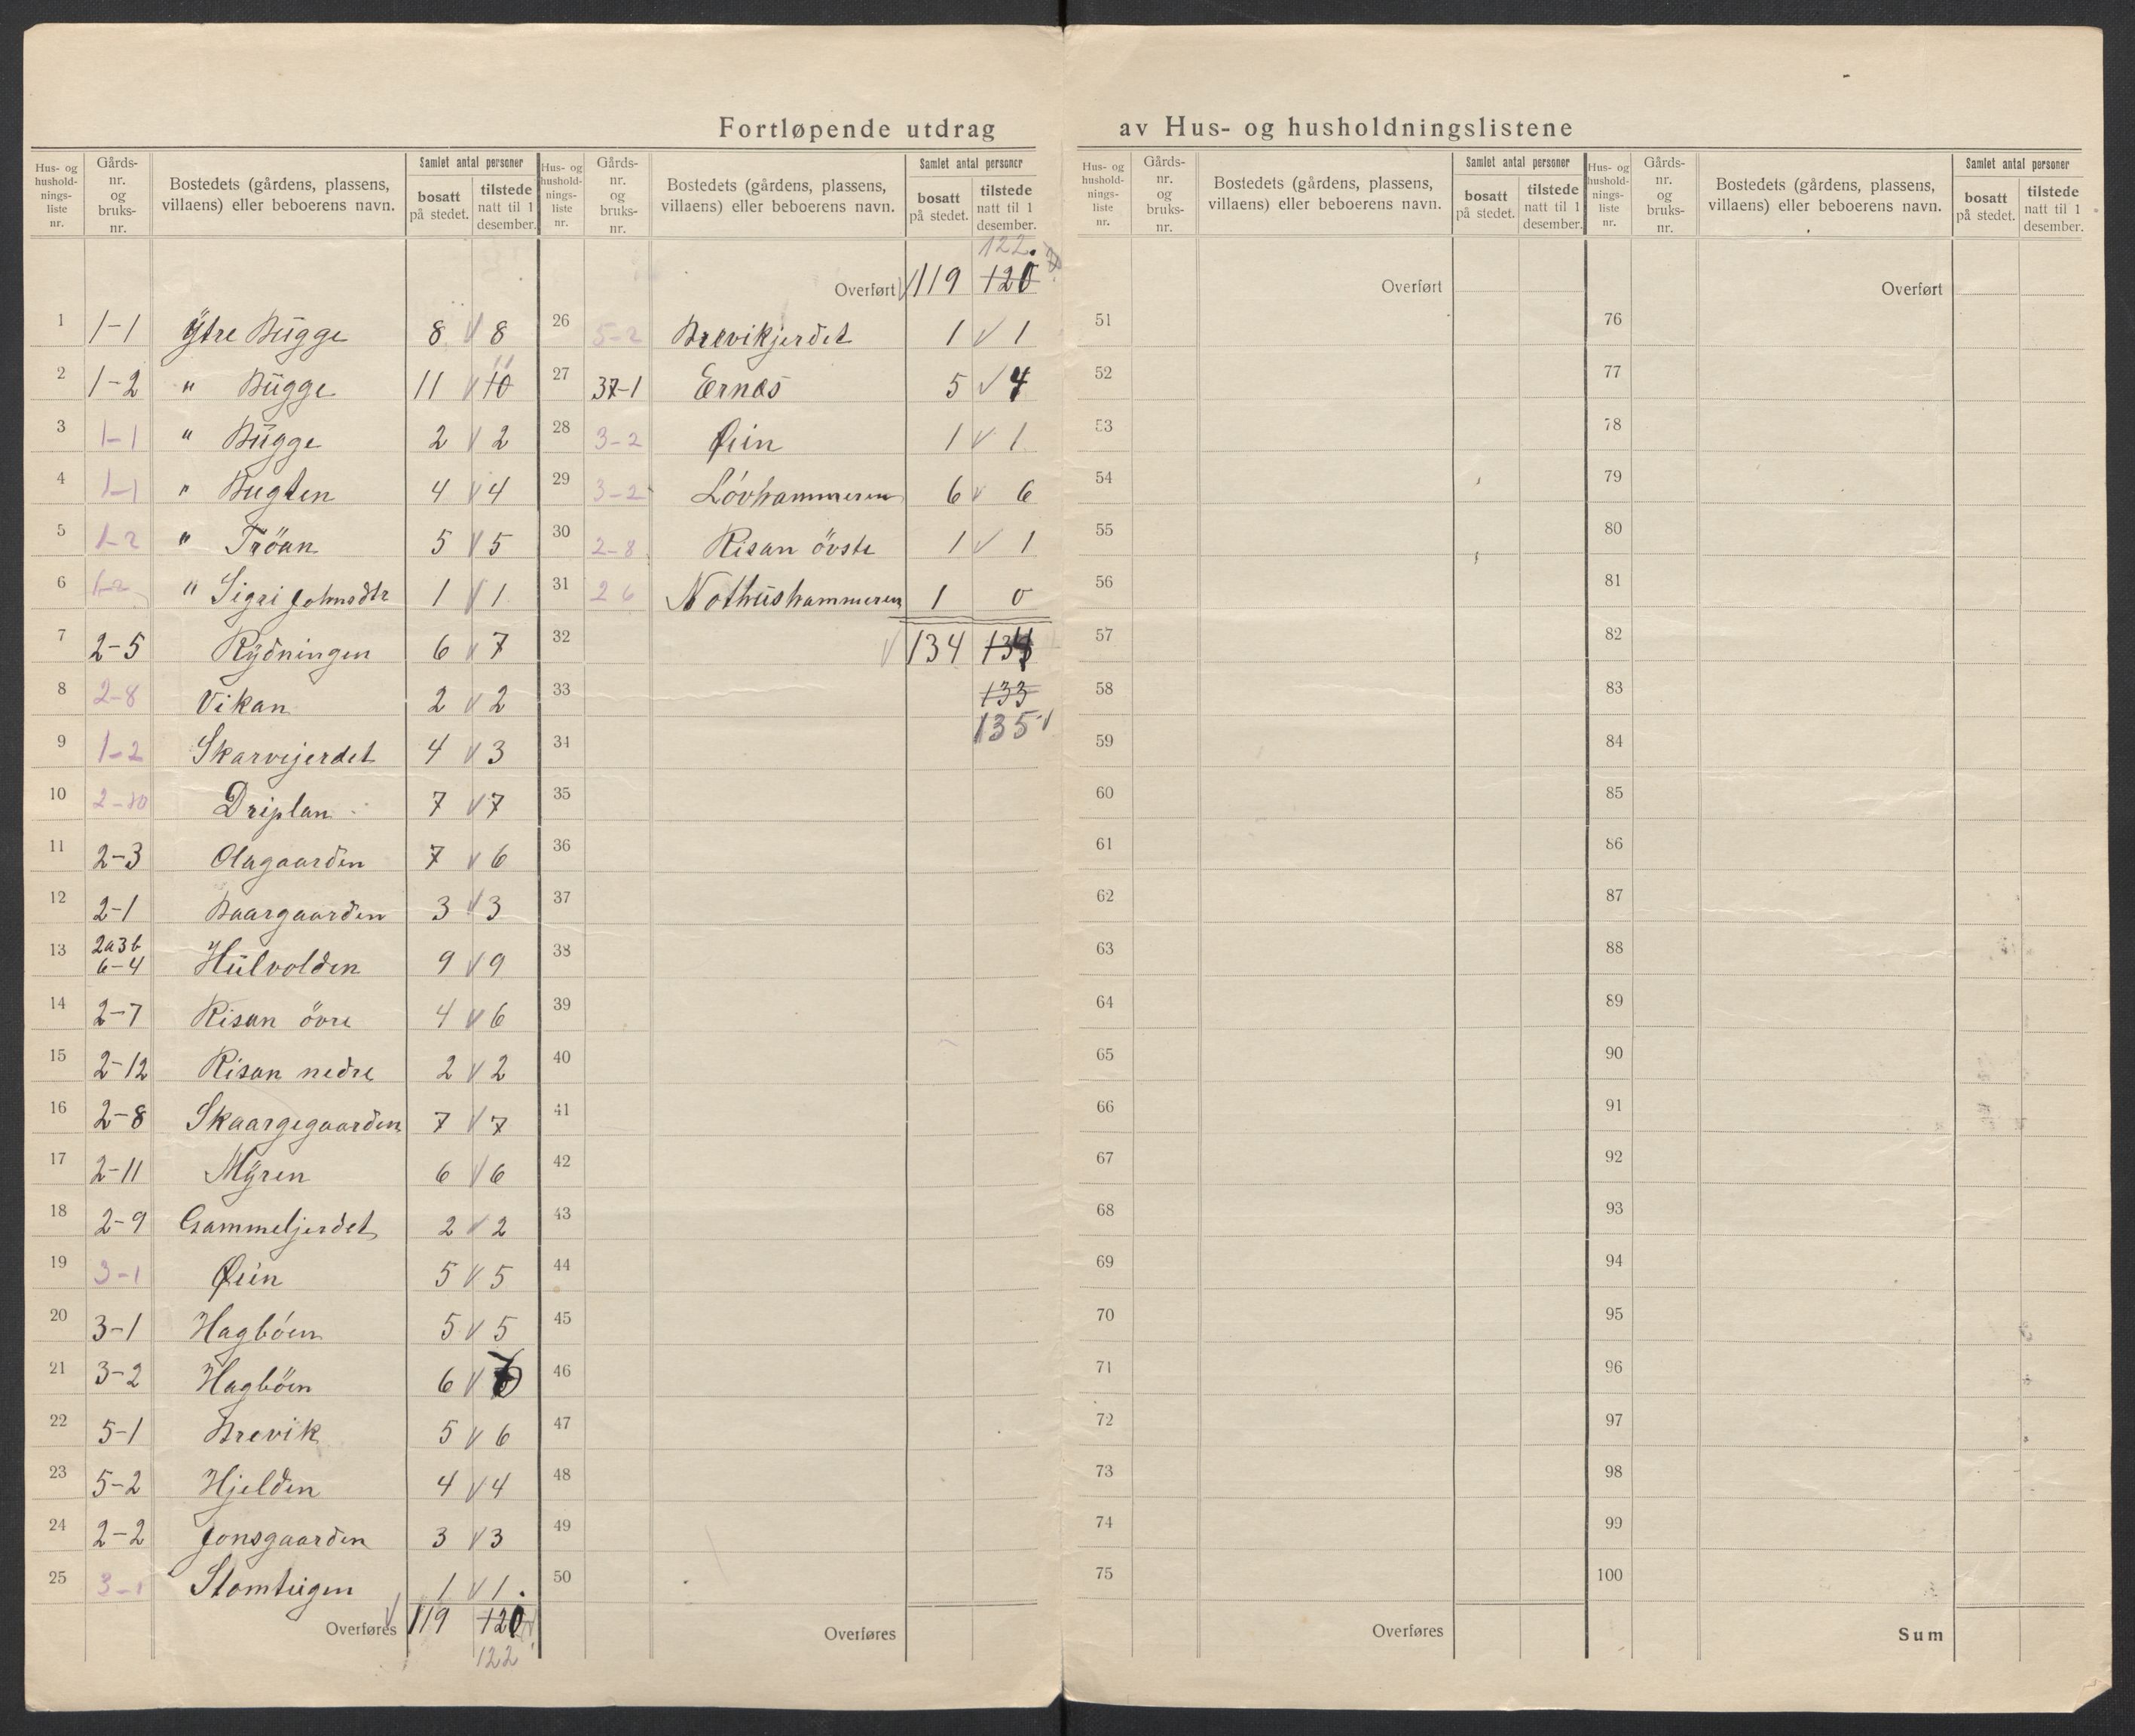 Fortløpende utdrag av Hus- og husholdningslistene
Hus- og hushold-nings-liste nr. Gårds-nr. og bruks-nr. Bostedets (gårdens, plassens, villaens) eller beboerens navn. Samlet antal personer bosatt på stedet. tilstede natt til 1 desember.
1 1-1 Ytre Bugge 8 8
2 1-2 " Bugge 11 10 11
3 1-1 " Bugge 2 2
4 1-1 " Bugten 4 4
5 1-2 " Tröan 5 5
6 1-2 " Sigri Johnsdtr 1 1
7 2-5 Rydningen 6 7
8 2-8 Vikan 2 2
9 1-2 Skarvejerdet 4 3
10 2-10 Driplan 7 7
11 2-3 Olagaarden 7 6
12 2-1 Baargaarden 3 3
13 2a3b 6-4 Hulvolden 9 9
14 2-7 Risan övre 4 6
15 2-12 Risan nedre 2 2
16 2-8 Skaargegaarden 7 7
17 2-11 Myren 6 6
18 2-9 Gammeljerdet 2 2
19 3-1 Øien 5 5
20 3-1 Hagböen 5 5
21 3-2 Hagböen 6 7
22 5-1 Brevik 5 6
23 5-2 Hjelden 4 4
24 2-2 Jonsgaarden 3 3
25 3-1 Stomtugen 1 1
Overføres 119 120
122
Hus- og hushold-nings-liste nr. Gårds-nr. og bruks-nr. Bostedets (gårdens, plassens, villaens) eller beboerens navn. Samlet antal personer bosatt på stedet. tilstede natt til 1 desember.
122
Overført 119 120
26 5-2 Brevikjerdet 1 1
27 37-1 Ernes 5 4
28 3-2 Øien 1 1
29 3-2 Lövhammeren 6 6
30 2-8 Risan övste 1 1
31 2 6 Nothushammeren 1 0
32 134 134
33 133
135
34
35
36
37
38
39
40
41
42
43
44
45
46
47
48
49
50
Overføres
Hus- og hushold-nings-liste nr. Gårds-nr. og bruks-nr. Bostedets (gårdens, plassens, villaens) eller beboerens navn. Samlet antal personer bosatt på stedet. tilstede natt til 1 desember.
Overført
51
52
53
54
55
56
57
58
59
60
61
62
63
64
65
66
67
68
69
70
71
72
73
74
75
Overføres
Hus- og hushold-nings-liste nr. Gårds-nr. og bruks-nr. Bostedets (gårdens, plassens, villaens) eller beboerens navn. Samlet antal personer bosatt på stedet. tilstede natt til 1 desember.
Overført
76
77
78
79
80
81
82
83
84
85
86
87
88
89
90
91
92
93
94
95
96
97
98
99
100
Sum